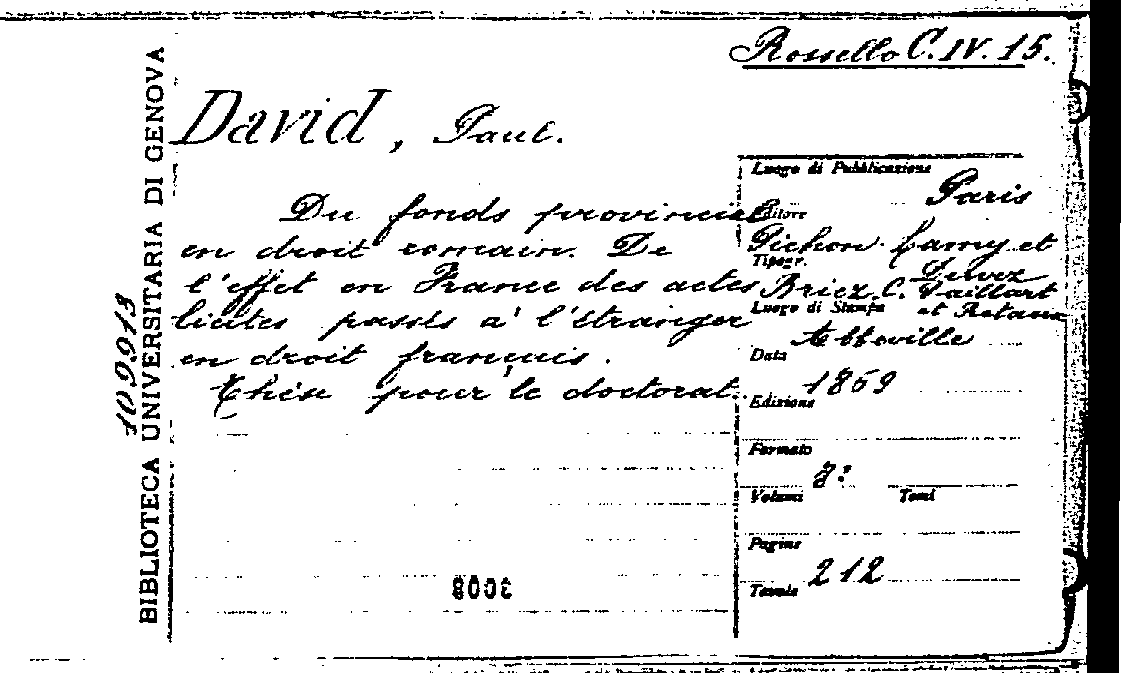 Rossello C. IV. 15.
David, Paul.
Du fonds provincial
en droit romain. De
l'effet en France des actes
licites passés à l'étranger
en droit français.
Thèse pour le doctorat.
Luogo di Pubblicazione
Paris
Editore
Pichon Lamy et
Dewez
Tipogr.
Briez, C. Paillart
et Retaux
Luogo di Stampa
Abbeville
Data
1869
Edizione
Formato
8º
Volumi Tomi
Pagine
212
Tavole
3008
BIBLIOTECA UNIVERSITARIA DI GENOVA
109913